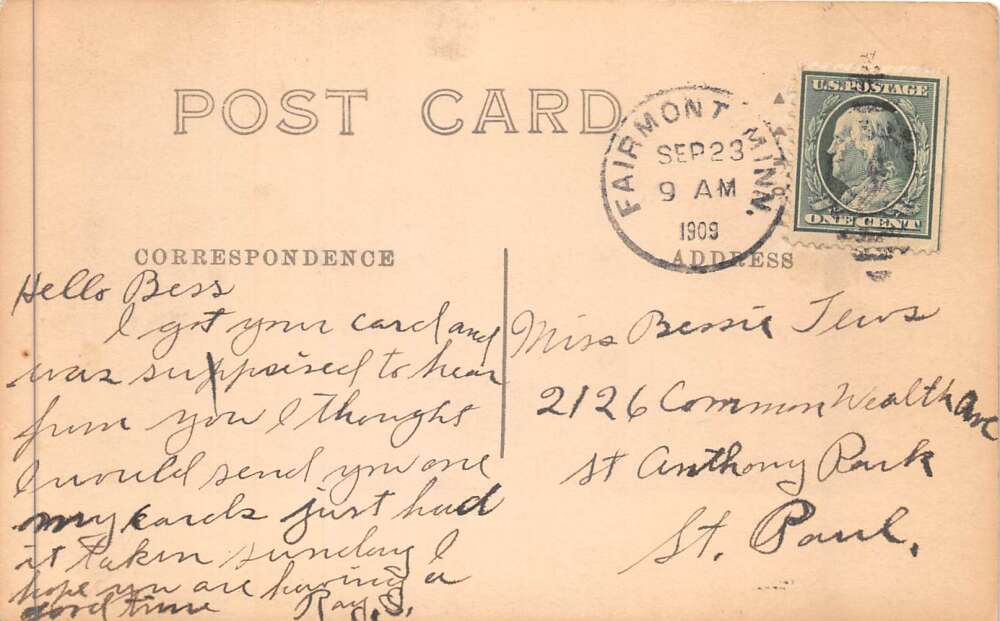 POST CARD
FAIRMONT MINN.
SEP 23
9 AM
1909
U.S. POSTAGE
ONE CENT
CORRESPONDENCE
ADDRESS
Hello Bess
I got your card and
was suppaised to hear
from you I thought
I would send you one
my cards just had
it taken sunday I
hope you are having a
good time Ray. S.
Miss Bessie
2126 Common Wealth Ave
St Anthony Park
St. Paul.